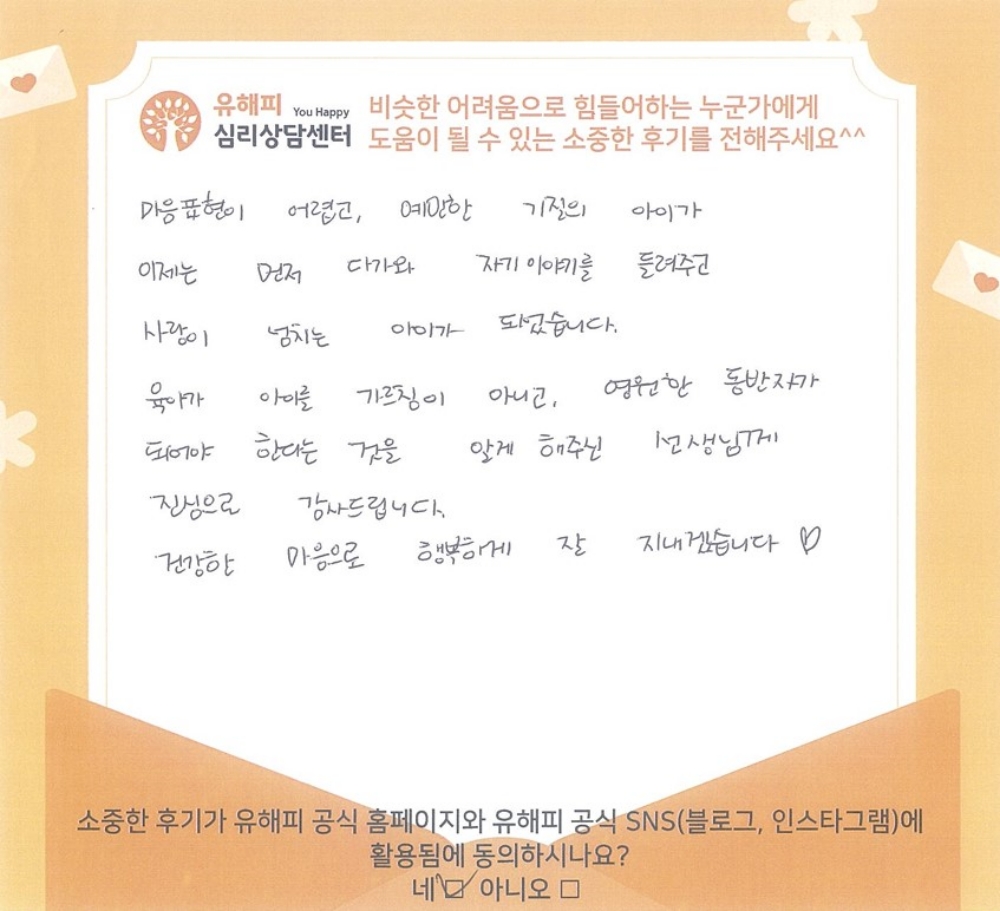 유해피 You Happy
심리상담센터
비슷한 어려움으로 힘들어하는 누군가에게
도움이 될 수 있는 소중한 후기를 전해주세요^^
마음표현이 어렵고, 예민한 기질의 아이가
이제는 먼저 다가와 자기 이야기를 들려주고
사랑이 넘치는 아이가 되었습니다.
육아가 아이를 가르침이 아니고, 영원한 동반자가
되어야 한다는 것을 알게 해주신 선생님께
진심으로 감사드립니다.
건강한 마음으로 행복하게 잘 지내겠습니다 ♡
소중한 후기가 유해피 공식 홈페이지와 유해피 공식 SNS(블로그, 인스타그램)에
활용됨에 동의하시나요?
네 ☑ 아니오 ☐